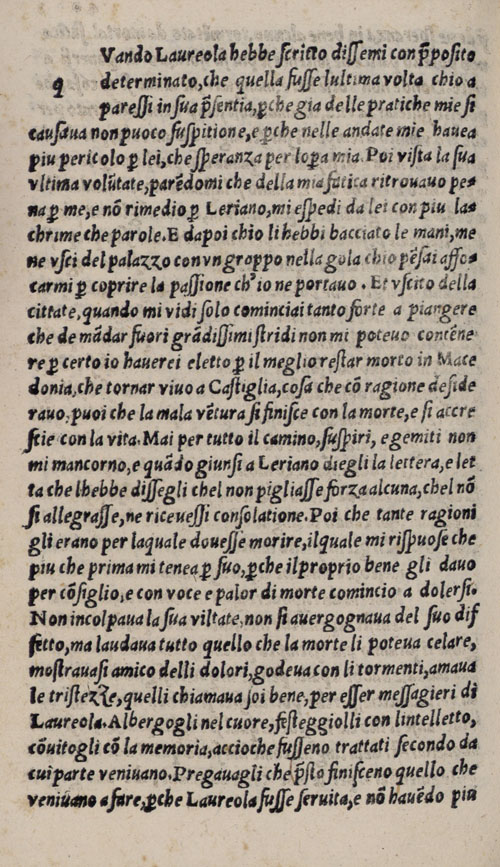 Vando Laureola hebbe ſcritto diſſemi con p̄poſito
q determinato, che quella fuſſe lultima volta chio a
pareſſi in ſua p̄ſentia, ꝑche gia delle pratiche mie ſi
cauſaua non puoco ſuſpitione, e ꝑche nelle andate mie hauea
piu pericolo ꝑ lei, che ſperanza per lopa mia. Poi viſta la ſua
vltima volũtate, parẽdomi che della mia fatica ritrouauo pe⸗
na ꝑ me, e nõ rimedio ꝑ Leriano, mi eſpedi da lei con piu la⸗
chrime che parole. E dapoi chio li hebbi bacciato le mani, me
ne vſci del palazzo con vn groppo nella gola chio pẽſai affo⸗
carmi ꝑ coprire la paſſione ch'io ne portauo. Et vſcito della
cittate, quando mi vidi ſolo cominciai tanto forte a piangere
che de mãdar fuori grãdiſſimi ſtridi non mi poteuo contẽne
re ꝑ certo io hauerei eletto ꝑ il meglio reſtar morto in Mace
donia, che tornar viuo a Caſtiglia, coſa che cõ ragione deſide
rauo, puoi che la mala vẽtura ſi finiſce con la morte, e ſi accre
ſcie con la vita. Mai per tutto il camino, ſuſpiri, e gemiti non
mi mancorno, e quãdo giunſi a Leriano diegli la lettera, e let
ta che lhebbe diſſegli chel non pigliaſſe forza alcuna, chel nõ
ſi allegraſſe, ne riceueſſi conſolatione. Poi che tante ragioni
gli erano per laquale doueſſe morire, il quale mi riſpuoſe che
piu che prima mi tenea ꝑ ſuo, ꝑche il proprio bene gli dauo
per cõſiglio, e con voce e palor di morte comincio a dolerſi.
Non incolpaua la ſua viltate, non ſi auergognaua del ſuo dif
fetto, ma laudaua tutto quello che la morte li poteua celare,
moſtrauaſi amico delli dolori, godeua con li tormenti, amaua
le triſtezze, quelli chiamaua joi bene, per eſſer meſſagieri di
Laureola. Albergogli nel cuore, feſteggiolli con lintelletto,
cõuitogli cõ la memoria, accioche fuſſeno trattati ſecondo da
cui parte veniuano. Pregauagli che p̄ſto finiſceno quello che
veniuano a fare, ꝑche Laureola fuſſe ſeruita, e nõ hauẽdo piu